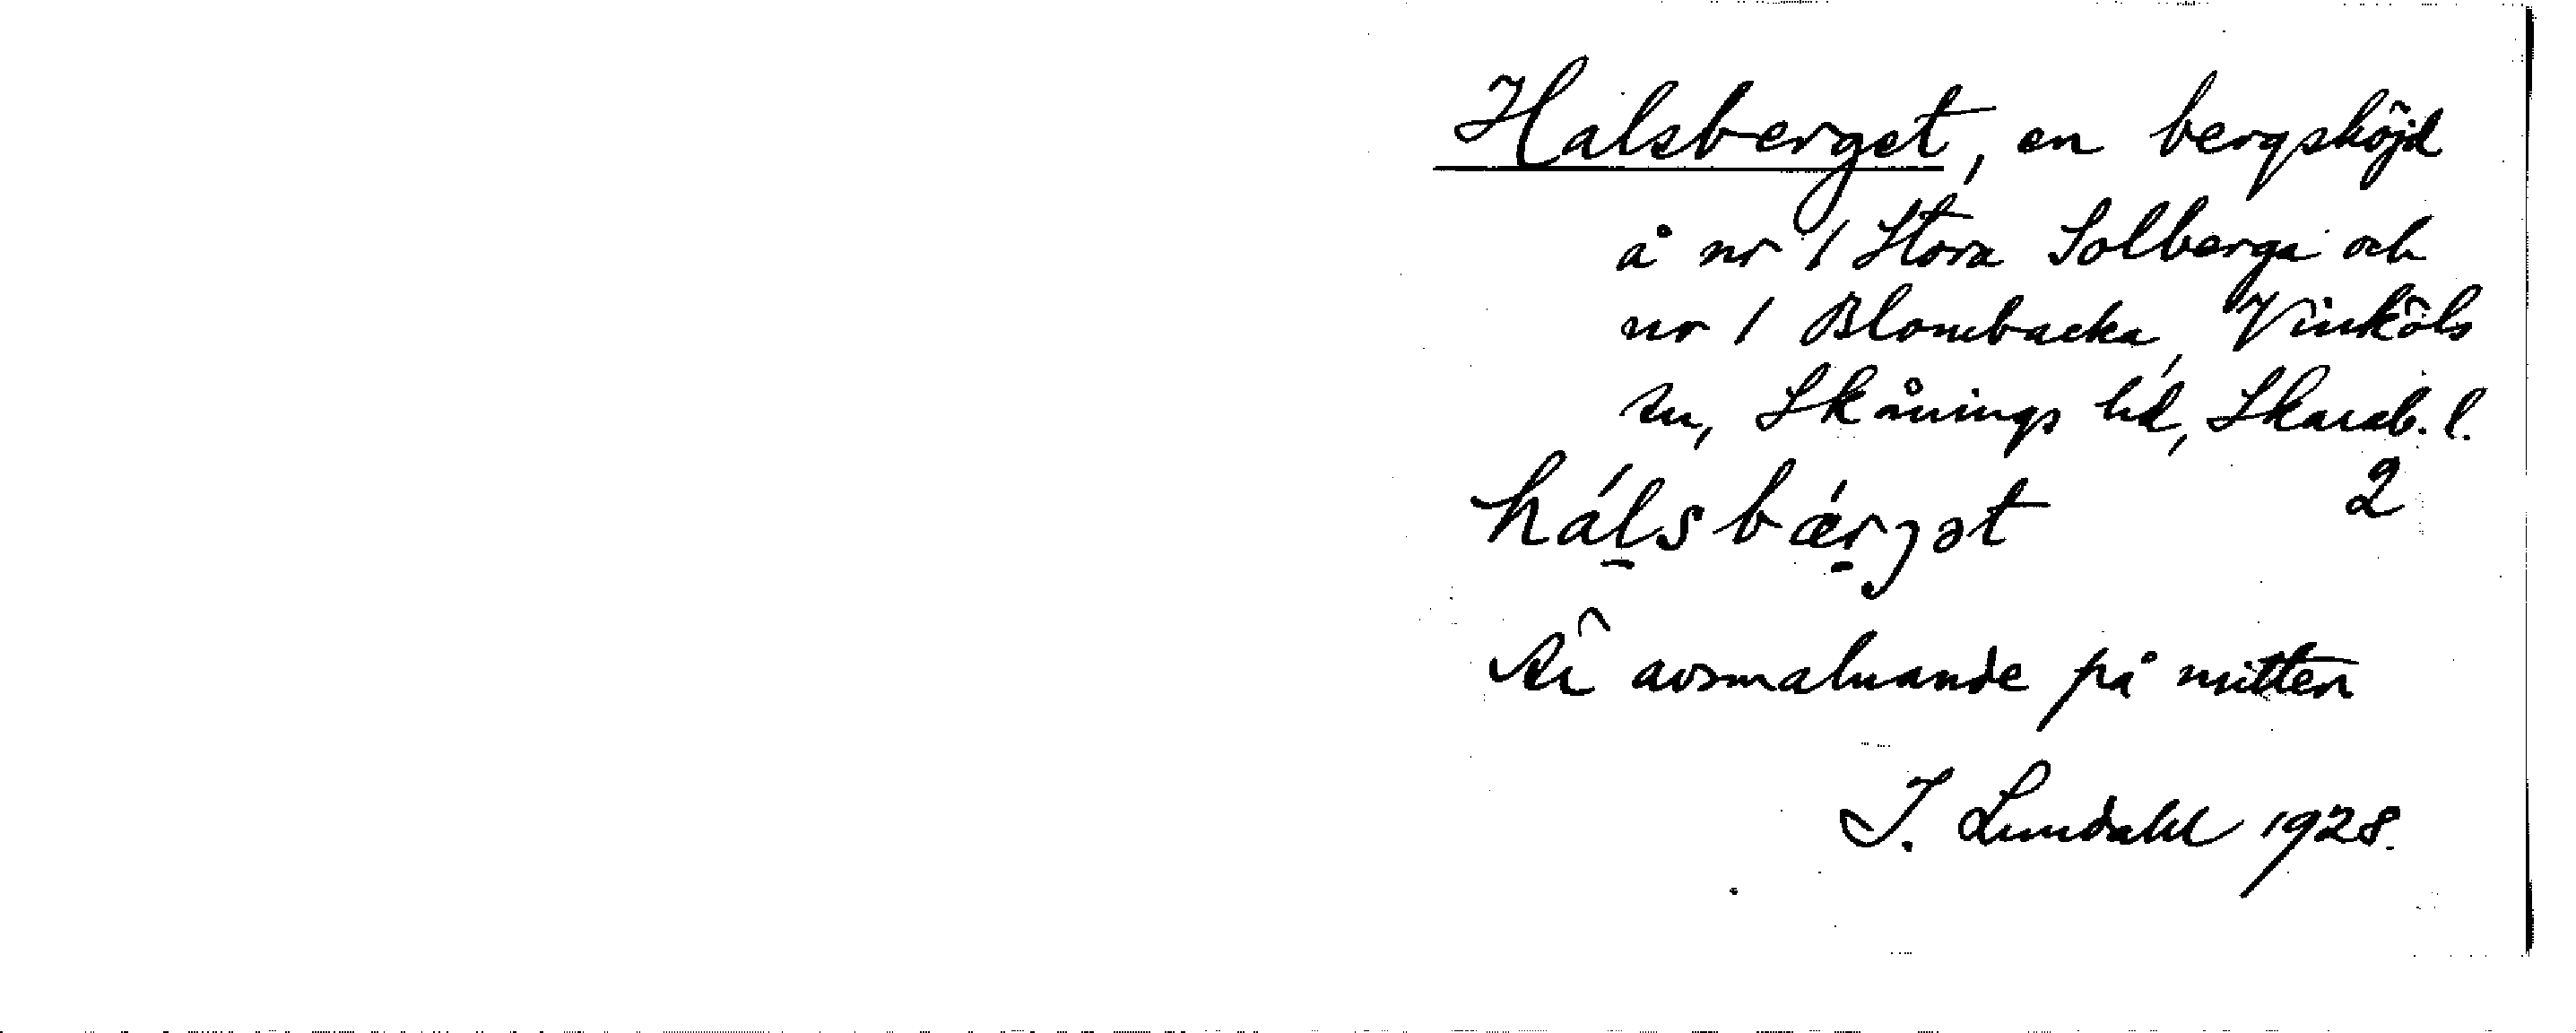 Halsberget, en bergshöjd
å nr 1 Stora Solberga och
nr 1 Blombacka, Vinköls
sn, Skånings hd, Skarab. l.
hál̠sbǽr̠jət 2
Är avsmalnande på mitten
I. Lundahl 1928.